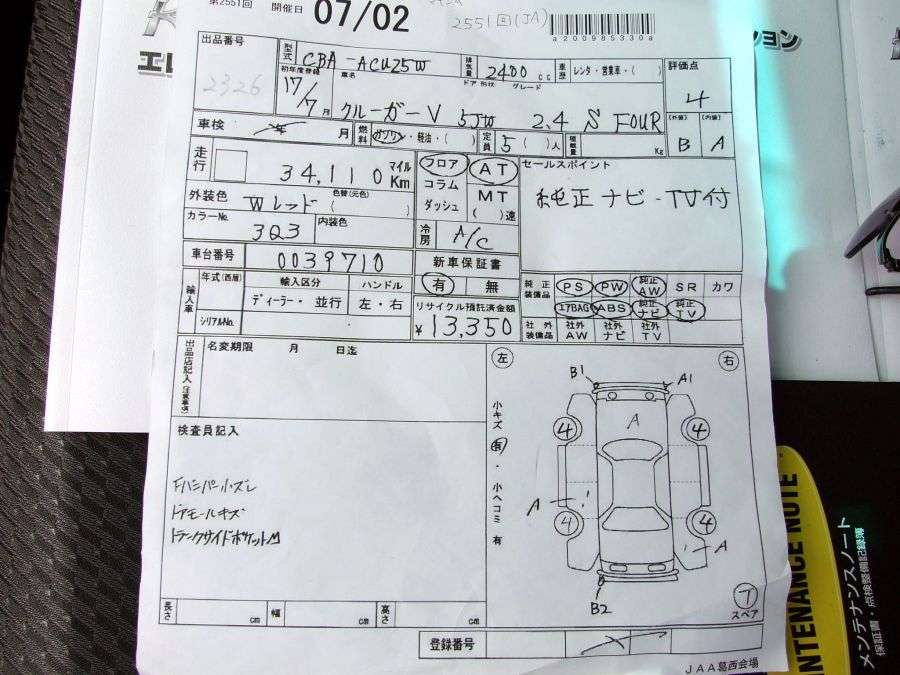 第2551回 開催日 07/02
2551回(JA)
a200985330a
エレ
ション
出品番号 2326
型式 CBA-ACU25W 排気量 2400 cc 車歴 レンタ・営業車・( ) 評価点 4
初年度登録 17/7月 車名 クルーガーV ドア 形状 5DW グレード 2.4 S FOUR (外装) B (内装) A
車検 年 月 燃料 ガソリン・軽油・( ) 定員 5( )人 積載量 Kg
走行 34,110 マイル Km フロア コラム ダッシュ AT MT ( )速 セールスポイント
純正ナビ-TV付
外装色 Wレッド 色替(元色) ( )
カラーNo. 3Q3 内装色 冷房 A/C
車台番号 0039710 新車保証書 有 無
輸入車 年式(西暦) 輸入区分 ハンドル
ディーラー・並行 左・右
シリアルNo.
リサイクル預託済金額 ¥13,350
純正装備品 PS PW 純正AW SR カワ
エアBAG ABS 純正ナビ 純正TV
社外装備品 社外AW 社外ナビ 社外TV
出品店記入(注意事項) 名変期限 月 日迄
検査員記入
Fバンパー小ズレ
ドアモールキズ
トランクサイドポケットM
左 右
B1 A1
A
4 4
小キズ 有・小ヘコミ 有
A
4 4
A
B2
フ スペア
長さ cm 幅 cm 高さ cm
登録番号
JAA葛西会場
MAINTENANCE NOTE
メンテナンスノート
保証書・点検整備記録簿